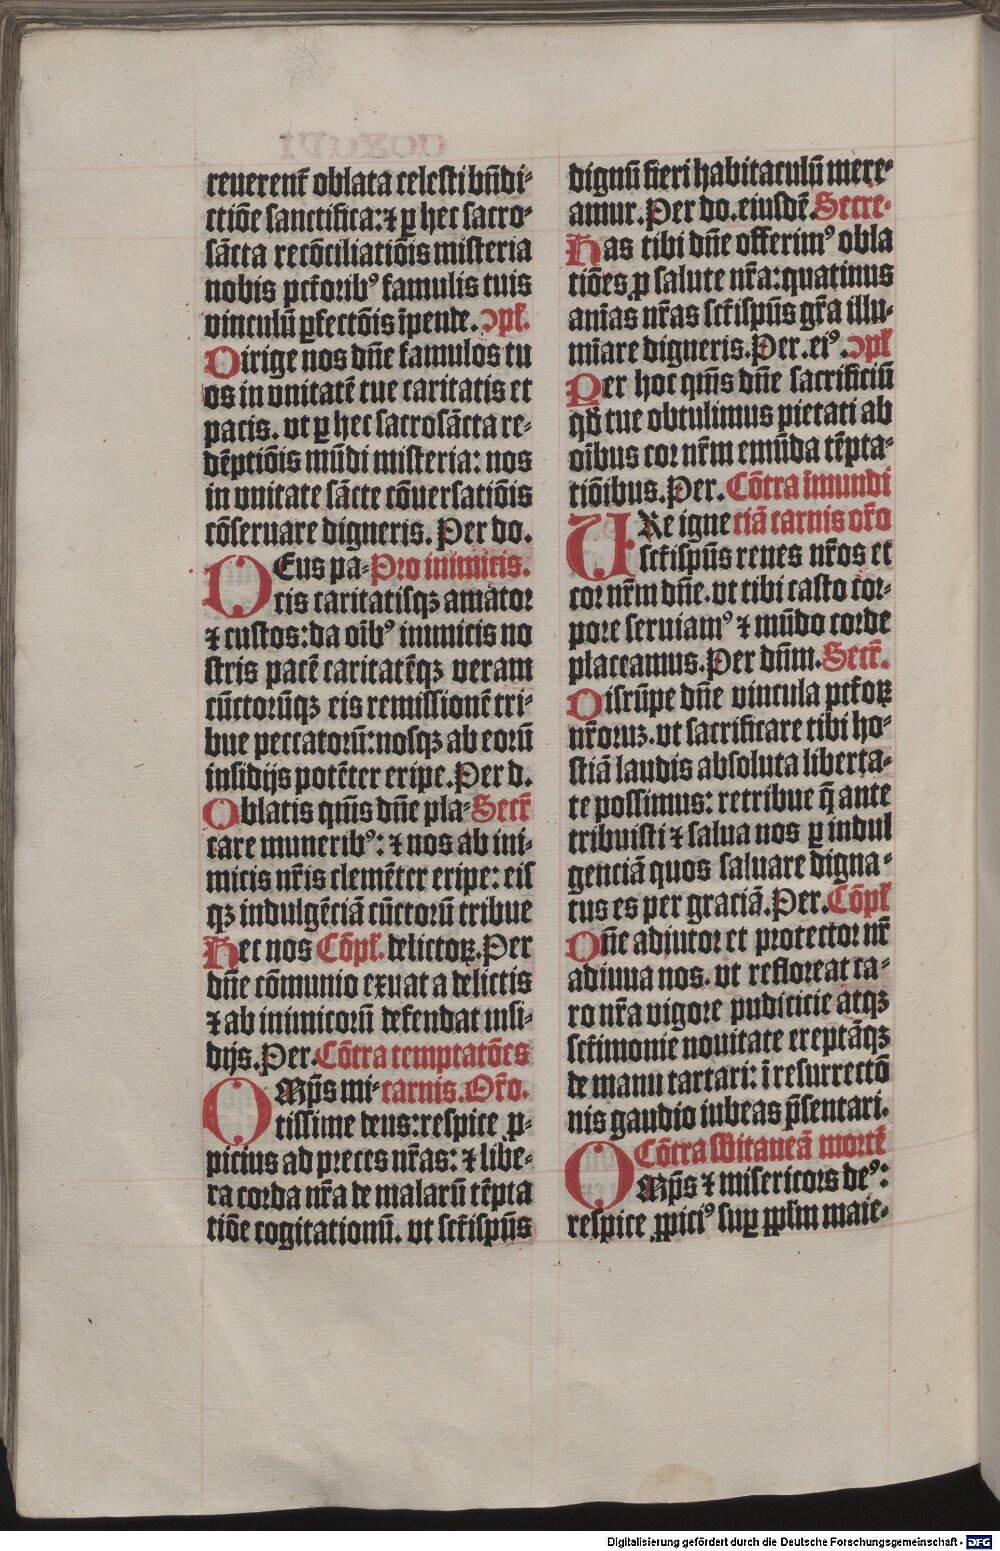 reuerenť oblata celesti bn̄di⸗
ctiōe sanctifica: ⁊ ꝑ hec sacro⸗
sācta recōciliatiōis misteria
nobis pctoribꝰ famulis tuis
vinculū ꝑfectōis īpende. Ↄpl̄.
Dirige nos dn̄e famulos tu
os in vnitatē tue caritatis et
pacis. vt ꝑ hec sacrosācta re⸗
dēptiōis mūdi misteria: nos
in vnitate sācte cōuersatiōis
cōseruare digneris. Per do.
DEus pa⸗ Pro inimicis.
cis caritatisqꝫ amator
⁊ custos: da oīb̄ꝰ inimicis no
stris pacē caritatēqꝫ veram
cūctorūqꝫ eis remissionē tri⸗
bue peccatorū: nosqꝫ ab eorū
insidijs potēter eripe. Per d.
Oblatis qm̄s dn̄e pla⸗ Secr̄
care muneribꝰ: ⁊ nos ab ini⸗
micis nr̄is clemēter eripe: eis
qꝫ indulgēciā cūctorū tribue
Hec nos Cōpl̄. delictoꝝ. Per
dn̄e cōmunio exuat a delictis
⁊ ab inimicorū defendat insi⸗
dijs. Per. Cōtra temptatōes
OMp̄s mi⸗ carnis. Or̄o.
tissime deus: respice ꝓ⸗
picius ad preces nr̄as: ⁊ libe⸗
ra corda nr̄a de malarū tēpta
tiōe cogitationū. vt sctīspūs
dignū fieri habitaculū mere⸗
amur. Per do. eiusdē. Secre⸗
Has tibi dn̄e offerimꝰ obla
tiōes ꝓ salute nr̄a: quatinus
aīas nr̄as sctīspūs gr̄a illu⸗
mīare digneris. Per. eiꝰ. Ↄpl̄
Per hoc qm̄s dn̄e sacrificiū
qd̄ tue obtulimus pietati ab
oībus cor nr̄m emūda tēpta⸗
tiōibus. Per. Cōtra īmundi
URe igne ciā carnis or̄o
sctīspūs renes nr̄os et
cor nr̄m dn̄e. vt tibi casto cor⸗
pore seruiamꝰ ⁊ mūdo corde
placeamus. Per dn̄m. Secr̄.
Disrūpe dn̄e vincula pctoꝝ
nr̄oruꝫ. vt sacrificare tibi ho⸗
stiā laudis absoluta liberta⸗
te possimus: retribue q̄ ante
tribuisti ⁊ salua nos ꝑ indul
genciā quos saluare digna⸗
tus es per graciā. Per. Cōpl̄
Dn̄e adiutor et protector nr̄
adiuua nos. vt refloreat ca⸗
ro nr̄a vigore pudicicie atqꝫ
sctīmonie nouitate ereptāqꝫ
de manu tartari: ī resurrectō
nis gaudio iubeas p̄sentari.
Cōtra sʙitaneā mortē
OMp̄s ⁊ misericors deꝰ:
respice ꝓpiciꝰ suꝑ ppl̄m maie⸗
Digitalisierung gefördert durch die Deutsche Forschungsgemeinschaft - DFG